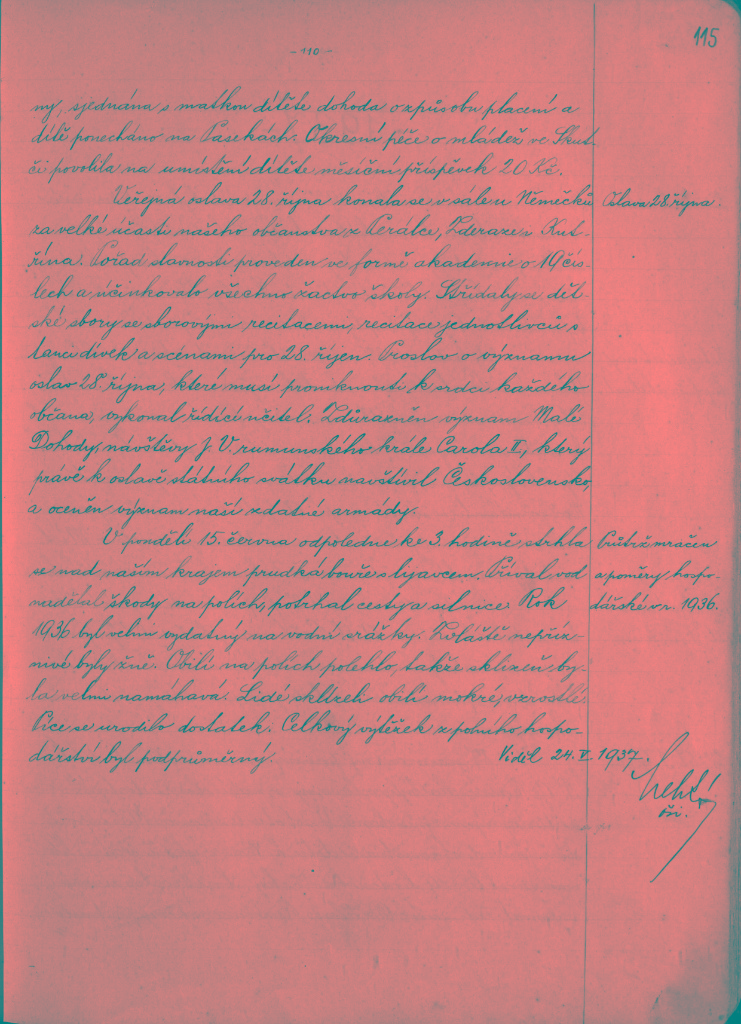 115
- 110 -
ny, sjednána s matkou dítěte dohoda o způsobu placení a
dítě ponecháno na Pasekách. Okresní péče o mládež ve Skut-
či povolila na umístění dítěte měsíční příspěvek 20 Kč.
Veřejná oslava 28. října konala se v sále u Německů
Oslava 28. října.
za velké účasti našeho občanstva z Perálce, Zderaze z Kut-
řína. Pořad slavnosti proveden ve formě akademie o 19 čís-
lech a účinkovalo všechno žactvo školy. Střídaly se dět-
ské sbory se sborovými recitacemi, recitace jednotlivců s
tanci dívek a scénami pro 28. říjen. Proslov o významu
oslav 28. října, které musí proniknouti k srdci každého
občana, vykonal řídící učitel. Zdůrazněn význam Malé
Dohody, návštěvy J. V. rumunského krále Carola II, který
právě k oslavě státního svátku navštívil Československo,
a oceněn význam naší zdatné armády.
V pondělí 15. června odpoledne ke 3. hodině strhla
Průtrž mračen
se nad naším krajem prudká bouře s lijavcem. Příval vod
a poměry hospo-
nadělal škody na polích, potrhal cesty a silnice. Rok
dářské v r. 1936.
1936 byl velmi vydatný na vodní srážky. Zvláště nepříz-
nivé byly žně. Obilí na polích polehlo, takže sklizeň by-
la velmi namáhavá. Lidé sklízeli obilí mokré, vzrostlé.
Píce se urodilo dostatek. Celkový výtěžek z polního hospo-
dářství byl podprůměrný.
Viděl 24. V. 1937.